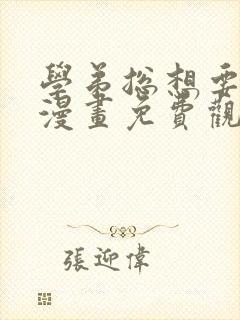 學弟總想要
漫畫免費觀
張迎偉